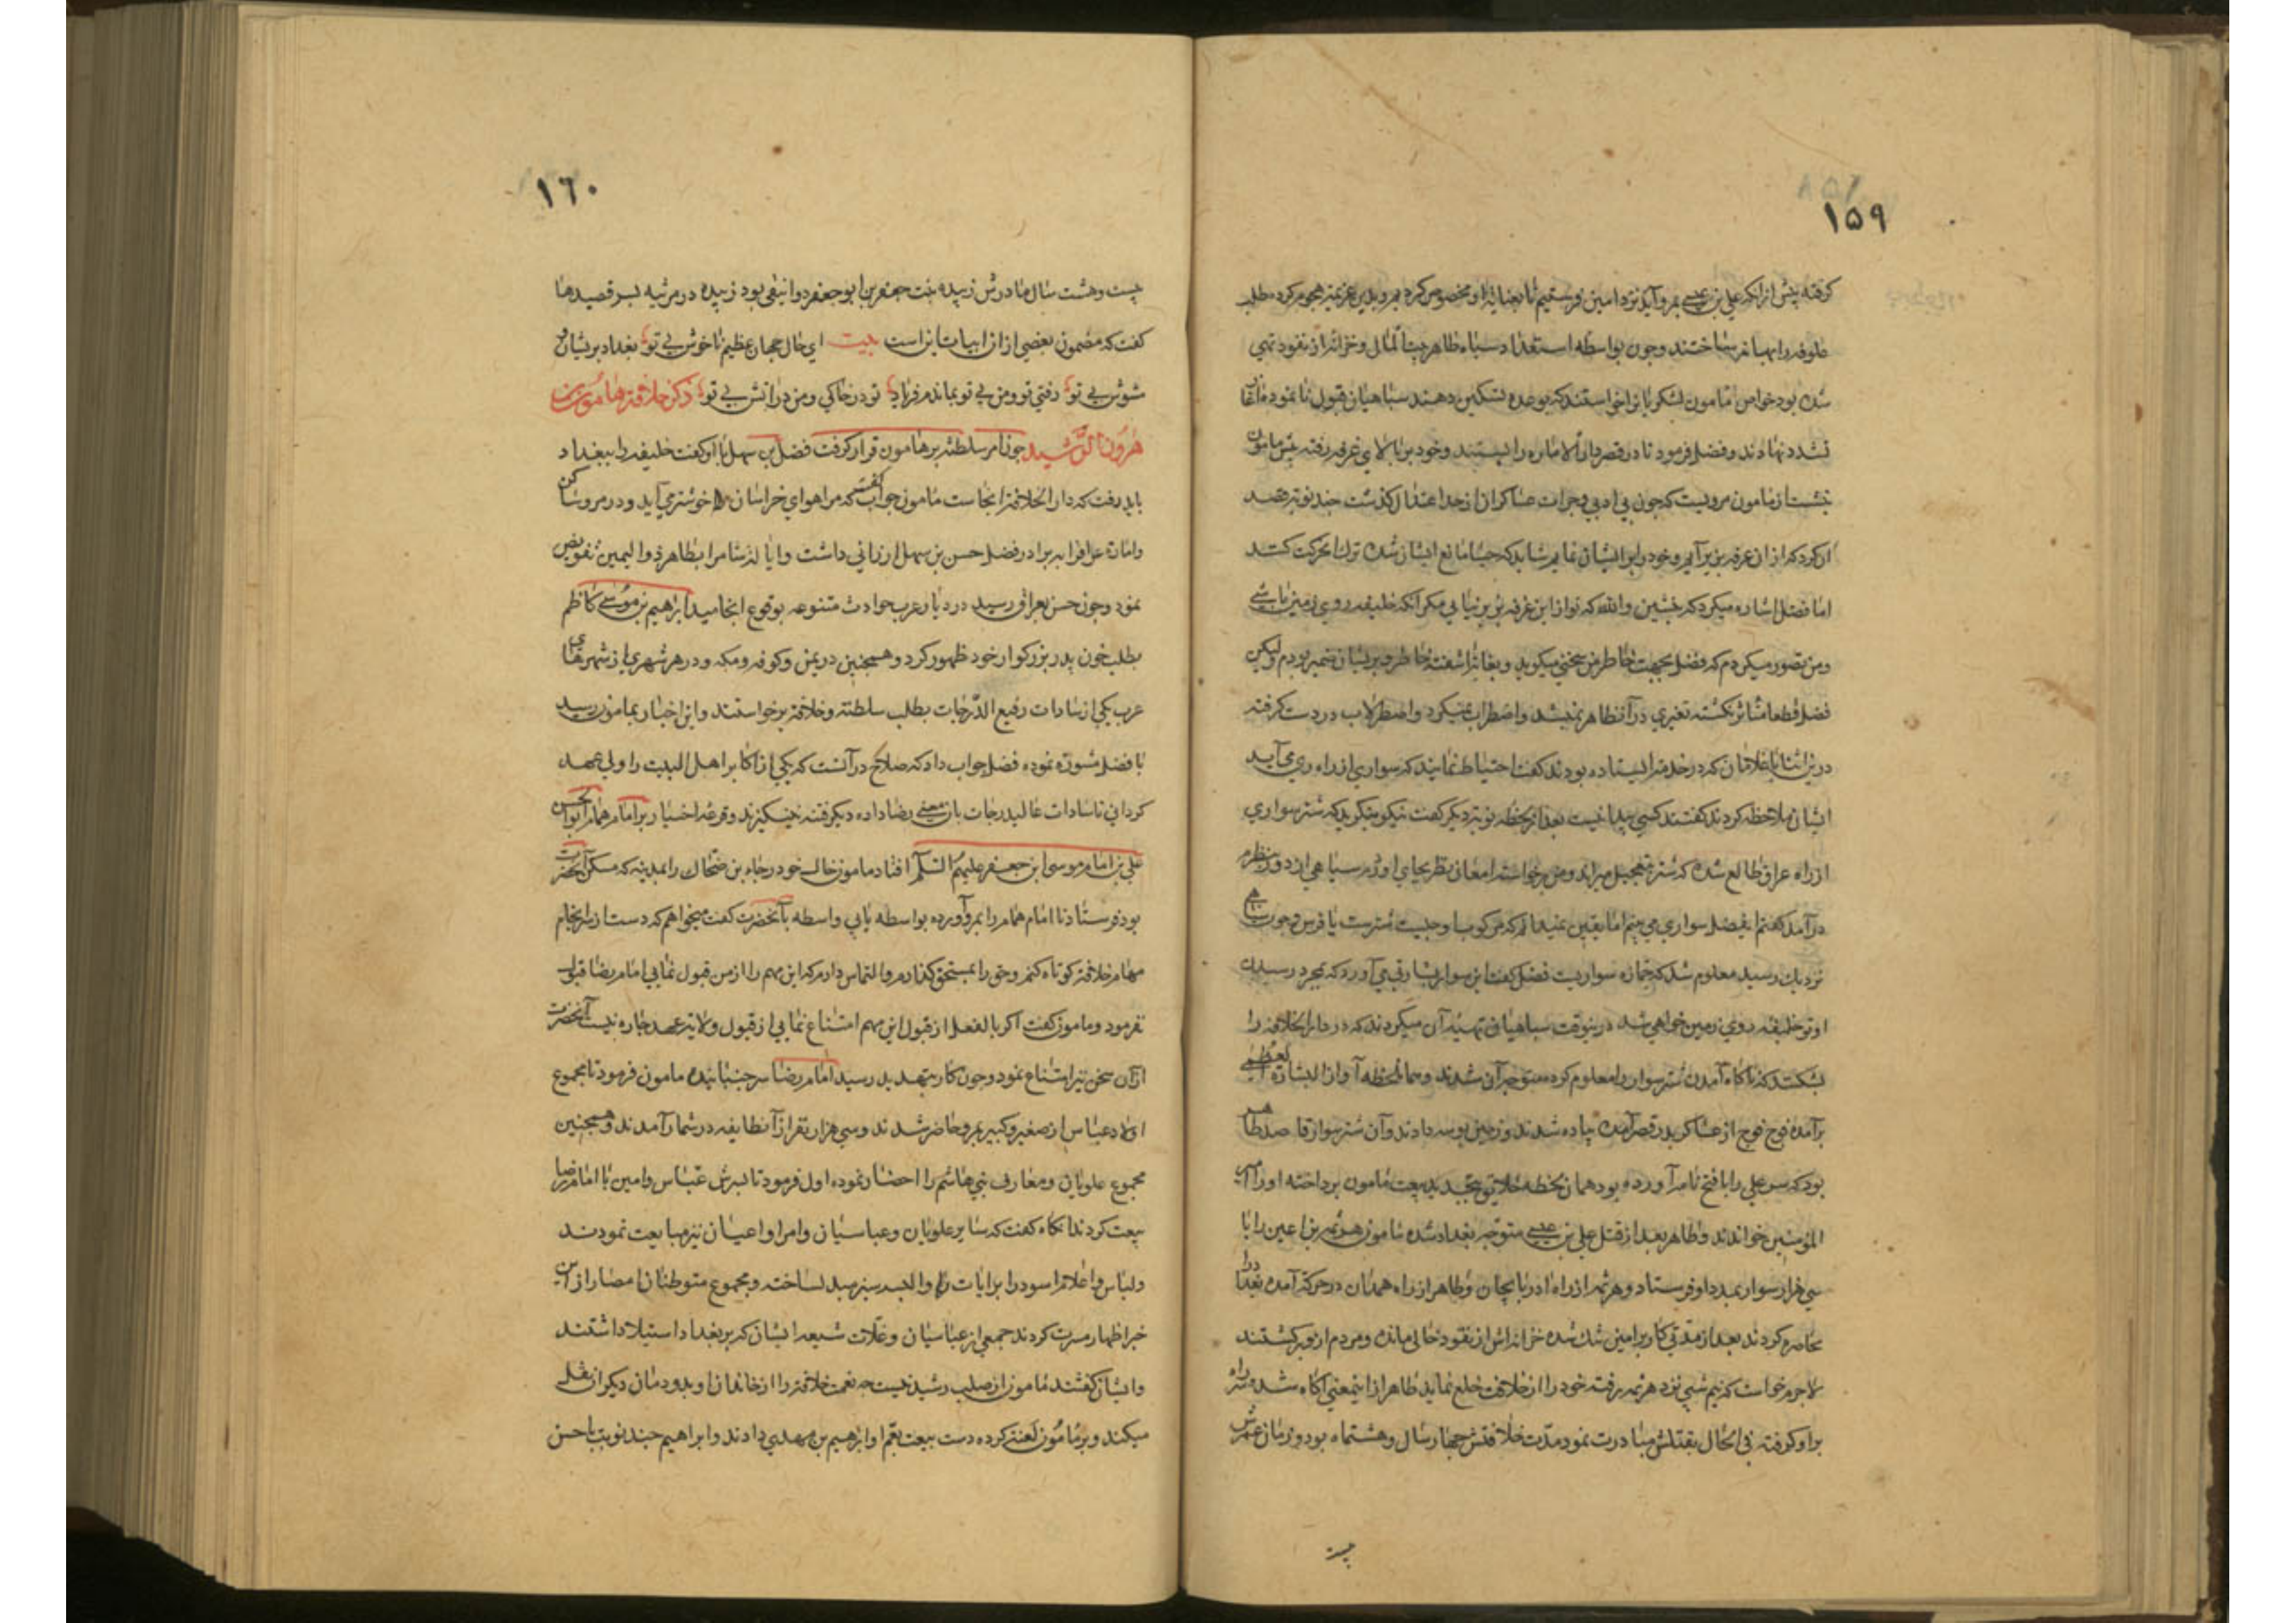 ١٥٩
کرفته پیش از انکه علی بن عیسی بمرو آید نزد امین فرستیم تا بعنایة او مخصوص کردیم و بدین عزیمة هجوم کرده طلب
علوفه را بهانه ساختند و چون بواسطه استعداد سپاه طاهر بیت المال و خزائن از نقود تهی
شده بود خواص مامون لشکریانرا خواستند که بوعده تسکین دهند سپاهیان قبول نا نموده آغاز
تشدد نهادند و فضل فرمود تا در قصر دار الاماره را ببستند و خود بر بالای غرفه رفته پیش مامون
بنشست از مامون مرویست که چون بی ادبی و جرات عساکر از حد اعتدال کذشت چند نوبة قصد
ان کردم که از ان غرفه بزیر آیم و خود را بر ایشان نمایم شاید که حیا مانع ایشان شده ترک حرکت کنند
اما فضل اشاره میکرد که بنشین و الله که تو از این غرفه بزیر نیایی مکر انکه خلیفه روی زمین باشی
و من تصور میکردم که فضل بجهت خاطر من سخنی میکوید و بغایة آشفته خاطر و پریشان ضمیر بودم ولیکن
فضل قطعا متاثر نکشته تغیری در آن ظاهر نمیشد و اضطراب نمیکرد و اضطرلاب در دست کرفته
درین اثنا با غلامان که در خدمة ایستاده بودند کفت احتیاط نمایند که سواری از راه ری می آید
ایشان ملاحظه کردند کفتند کسی پیدا نیست بعد از لحظه نوبة دیکر کفت نیکو بنکرید که شتر سواری
از راه عراق طالع شده که شتر بتعجیل میراند و من برخواسته امعان نظر بجای اوردم سیاهی از دور بنظرم
درآمد کفتم ای فضل سواری می بینم اما یقین نمیدانم که مرکوب او چیست شترست یا فرس و چون سیاهی
نزدیک رسید معلوم شد که جمازه سواریست فضل کفت این سوار بشارتی می آورد که بمجرد رسیدن
او تو خلیفه روی زمین خواهی شد درینوقت سپاهیان تهیهٔ آن میکردند که در دار الخلافه را
بشکنند که ناکاه آمدن شتر سوار را معلوم کرده متوجه آن شدند و همان لحظه آواز البشارة العظمی
برآمده فوج فوج از عساکر بدر قصر آمده پیاده شدند و زمین بوسه دادند و آن شتر سوار قاصد طاهر
بود که سر علی را با فتح نامه آورده بود همان لحظه خلایق بتجدید بیعت مامون پرداخته او را امیر
المؤمنین خواندند و طاهر بعد از قتل علی بن عیسی متوجه بغداد شده مامون هرثمه بن اعین را با
سی هزار سوار بمدد او فرستاد و هرثمه از راه ادربایجان و طاهر از راه همدان در حرکة آمده بغداد را
محاصره کردند بعد از مدتی کار بر امین تنک شده خزانه اش از نقود خالی مانده و مردم ازو برکشتند
لاجرم خواست که نیم شبی نزد هرثمه رفته خود را از خلافت خلع نماید طاهر از اینمعنی آکاه شده سر راه
بر او کرفته فی الحال بقتلش مبادرت نمود مدت خلافتش چهار سال و هشت ماه بود و زمان عمرش
بیست
١٦٠
بیست و هشت سال مادرش زبیده بنت جعفر بن ابو جعفر دوانیقی بود زبیده در مرثیه پسر قصیدها
کفت که مضمون بعضی از ان ابیات اینراست بیت ای حال جهان عظیم ناخوش بی تو بغداد پریشان و
شوش بی تو رفتی تو و من بی تو بماندم فریاد تو در خاکی و من در آتش بی تو ذکر خلافة مامون بن
هرون الرشید چون امر سلطنة بر مامون قرار کرفت فضل بن سهل با او کفت خلیفه را ببغداد
باید رفت که دار الخلافة انجاست مامون جواب کفت که مرا هوای خراسان خوشتر می آید و در مرو ساکن
و امارة عراق را به برادر فضل حسن بن سهل ارزانی داشت و ایالة شام را بطاهر ذو الیمینین تفویض
نمود و چون حسن بعراق رسید در دیار عرب حوادث متنوعه بوقوع انجامید ابراهیم بن موسی کاظم
بطلب خون پدر بزرکوار خود ظهور کرد و همچنین در یمن و کوفه و مکه و در هر شهری از شهرهای
عرب یکی از سادات رفیع الدرجات بطلب سلطنة و خلافة برخواستند و این اخبار بمامون رسید
با فضل مشورة نموده فضل جواب داد که صلاح در آنست که یکی از اکابر اهل البیت را ولی عهد
کردانی تا سادات عالیدرجات بان معنی رضا داده دیکر فتنه نینکیزند و قرعه اختیار بر امام همام ابو الحسن
علی بن امام موسی ابن جعفر علیهم السلم افتاد مامون خال خود رجاء بن ضحاک را بمدینه که مسکن آنحضرت
بود فرستاد تا امام همام را بمرو آورده بواسطه یا بی واسطه با آنحضرت کفت میخواهم که دست از سر انجام
مهام خلافة کوتاه کنم و حق را بمستحق کذارم و التماس دارم که این مهم را از من قبول نمایی امام رضا قبول
نفرمود و مامون کفت اکر بالفعل از قبول این مهم امتناع نمایی از قبول ولایة عهد چاره نیست آنحضرت
از آن سخن نیز امتناع نمود و چون کار بتهدید رسید امام رضا سر جنبانیده مامون فرمود تا مجموع
اولاد عباس از صغیر و کبیر بمرو حاضر شدند و سی هزار نفر از آن طایفه در شمار آمدند و همچنین
مجموع علویان و معارف بنی هاشم را احضار نموده اول فرمود تا پسرش عباس و امین با امام رضا
بیعت کردند انکاه کفت که سایر علویان و عباسیان و امرا و اعیان نیز مبایعت نمودند
و لباس و اعلام اسود را برایات و البسه سبز مبدل ساخته و مجموع متوطنان امصار از این
خبر اظهار مسرت کردند جمعی از عباسیان و غلات شیعه ایشان که بر بغداد استیلا داشتند
و ایشان کفتند مامون از صلب رشید نیست چه نعمت خلافة را از خاندان او بدودمان دیکران نقل
میکند و بر مامون لعنة کرده دست بیعت بعم او ابرهیم بن مهدی دادند و ابراهیم چند نوبت با حسن